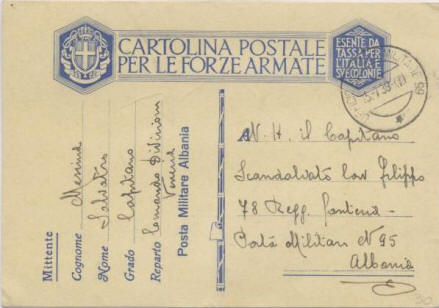 CARTOLINA POSTALE
PER LE FORZE ARMATE
ESENTE DA
TASSA PER
L'ITALIA E
SVE COLONIE
Mittente
Cognome Messina
Nome Salvatore
Grado Capitano
Reparto Comando Divisione
Venezia
Posta Militare Albania
A N. H. il Capitano
Cav Filippo
78 Regg. Fanteria -
Posta Militare N 95
Albania